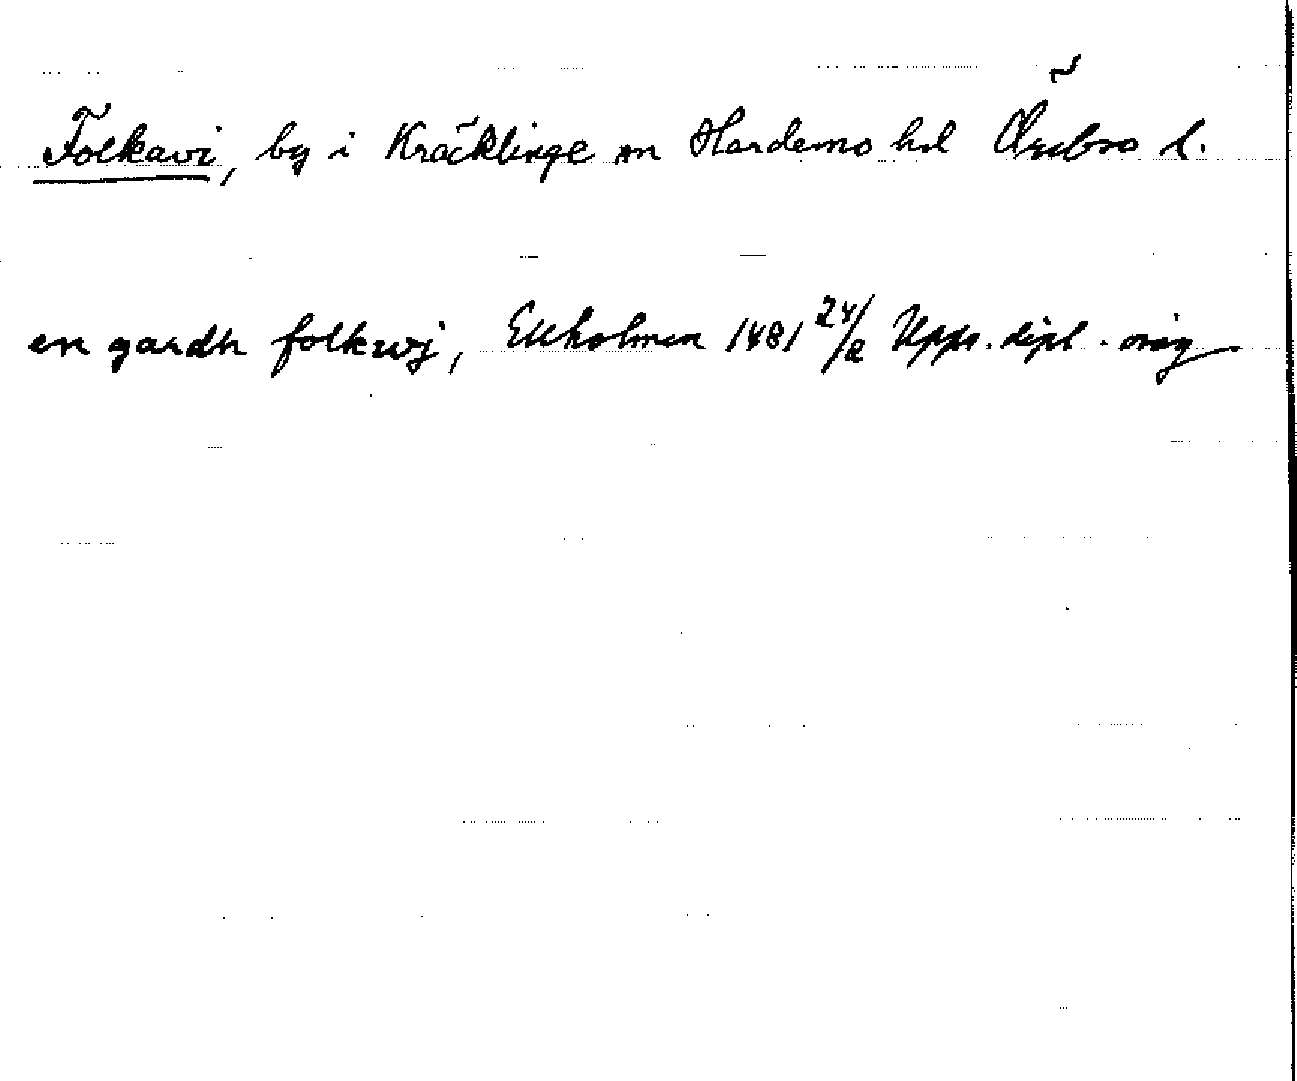 Folkavi, by i Kräcklinge sn Hardemo hd Örebro l.
en gardh folkwj, Ekholmen 1481 24/2 Upps. dipl. orig